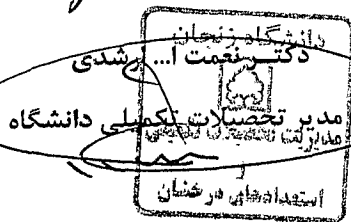 دانشگاه زنجان
دکتر نعمت ا... ارشدی
مدیر تحصیلات تکمیلی دانشگاه
مدیریت تحصیلات تکمیلی
و
استعدادهای درخشان